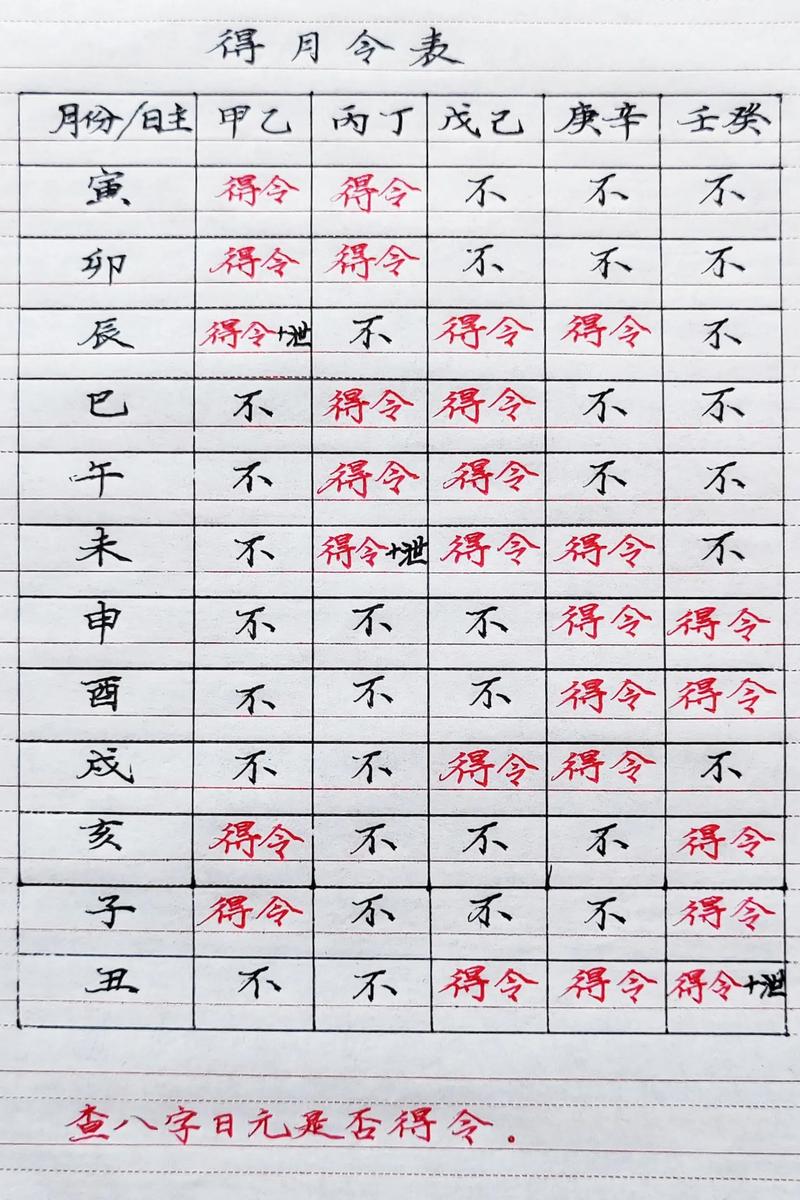 得月令表
月份/日主 甲乙 丙丁 戊己 庚辛 壬癸
寅 得令 得令 不 不 不
卯 得令 得令 不 不 不
辰 得令+泄 不 得令 得令 不
巳 不 得令 得令 不 不
午 不 得令 得令 不 不
未 不 得令+泄 得令 得令 不
申 不 不 不 得令 得令
酉 不 不 不 得令 得令
戌 不 不 得令 得令 不
亥 得令 不 不 不 得令
子 得令 不 不 不 得令
丑 不 不 得令 得令 得令+泄
查八字日元是否得令。